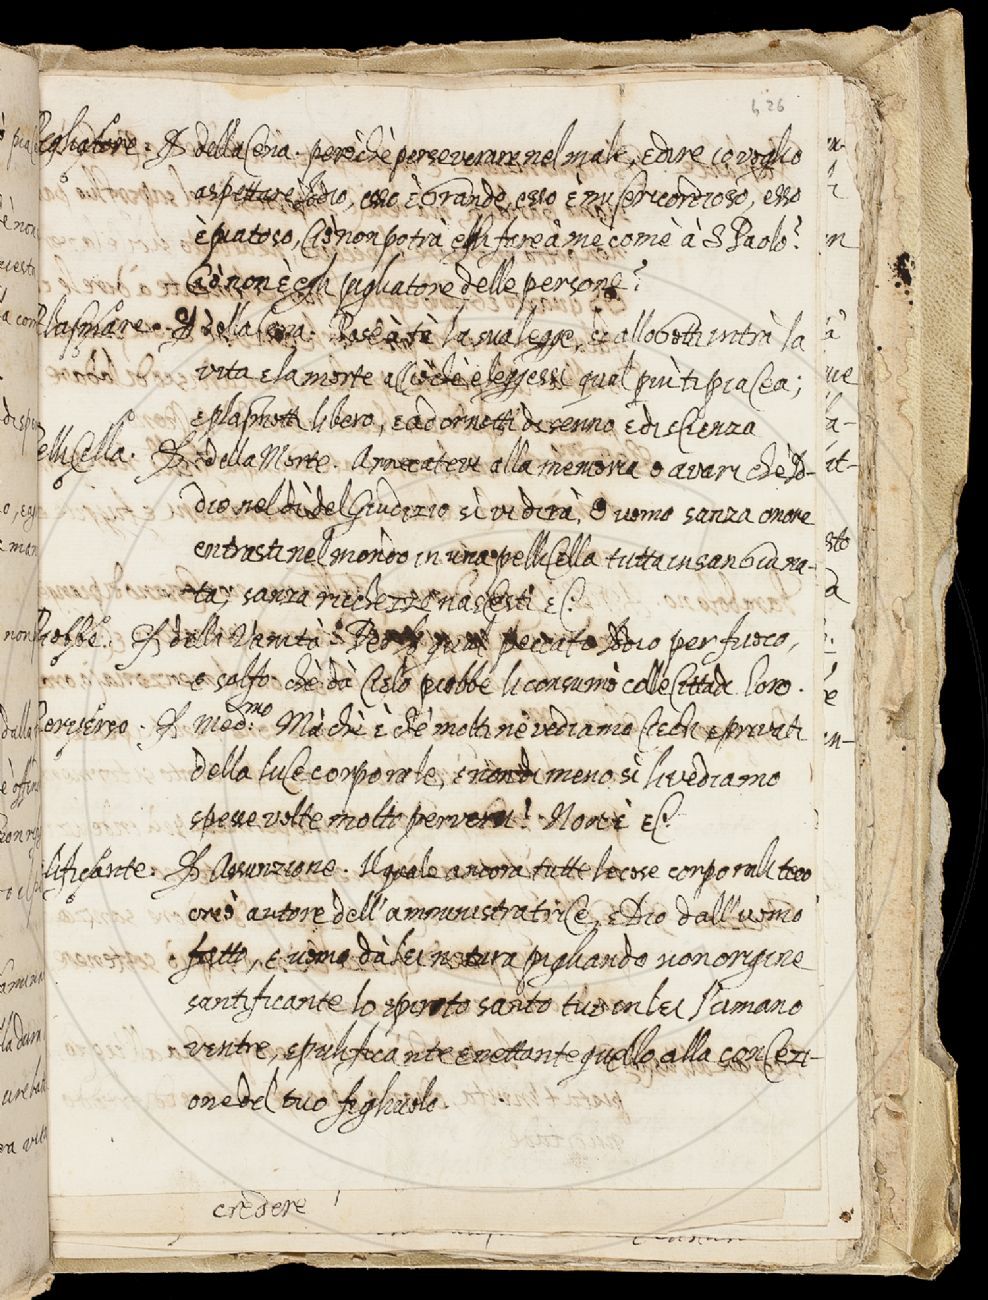 626
Pigliatore. P. della Cena. però chè perseverare nel male, e dire io voglio
aspettare Iddio, esso è grande, esso è misericordioso, esso
è piatoso, Ciò non potrà egli fare à me come à S. Paolo?
Ciò non è egli pigliatore delle persone?
Plasmare. P. della Cena. Pose à te la sua legge, e allogotti intrà la
vita e la morte acciòchè eleggessi qual più ti piacea;
e plasmotti libero, e adornotti di senno e di scienza
Pellicella. P. della Morte. Arrecatevi alla memoria o avari chè Id-
dio nel dì del Giudizio si vi dirà, O uomo sanza onore
entrasti nel mondo in una pellicella tutta insanguina-
ta, sanza ricchezze nascesti ec.
Piobbe. P. della Vanità. Per lo qual peccato Iddio per fuoco,
e solfo che dà Cielo piobbe li consumò colle Cittadi loro.
Perverso. P. med.mo Mà chi è che molti nè vediamo ciechi e privati
della luce corporale, e nondimeno si li vediamo
spesse volte molto perversi? Non è ec.
lificante. P. Assunzione. Il quale ancora tutte le cose corporali teco
creò autore dell'amministratrice, e Dio dall'uomo
fatto, e uomo dà lei natura pigliando non origine
santificante lo spirito santo tuo in lei l'umano
ventre, e pulificante e nettante quello alla concezi-
one del tuo figliuolo.
credere